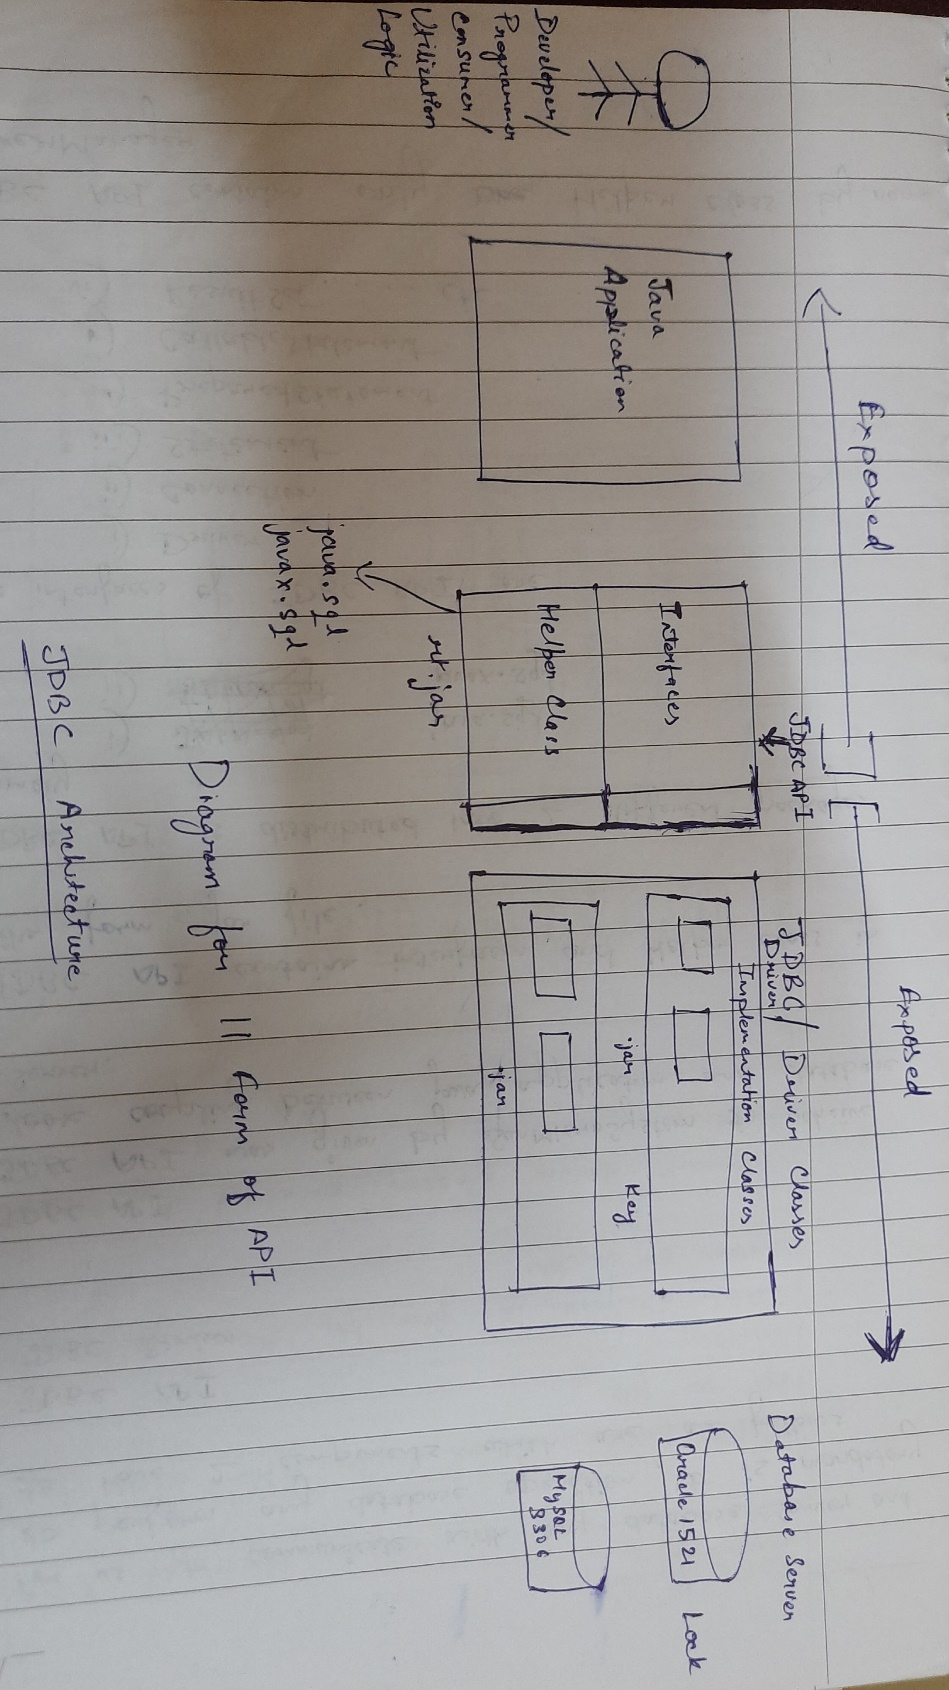 Exposed
Exposed
Developer/
Programmer
Consumer/
Utilization
Logic
Java
Application
JDBC API
Interfaces
Helper Class
rt.jar
java.sql
javax.sql
JDBC/ Driver Classes
Driver
Implementation Classes
.jar
Key
.jar
Database Server
Oracle 1521
Lock
MySQL
3306
Diagram for || form of API
JDBC Architecture